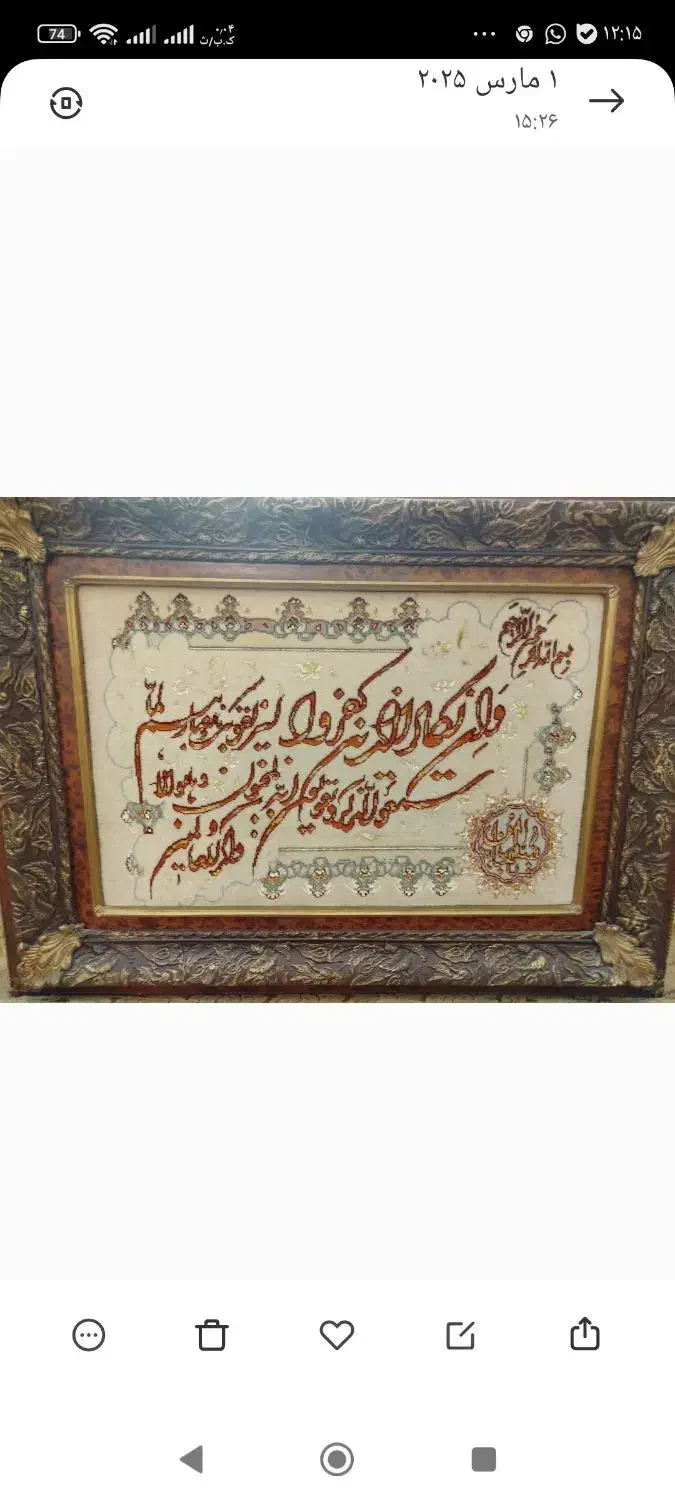 74
۰/۰۴
ک.ب/ث
۱۲:۱۵
۱ مارس ۲۰۲۵
۱۵:۲۶
بسم الله الرحمن الرحیم
وَاِن یکاد الذین کفروا لیزلقونک بابصارهم لمّا
سمعوا الذکر و یقولون انه لمجنون و ما هو الا
ذکر للعالمین